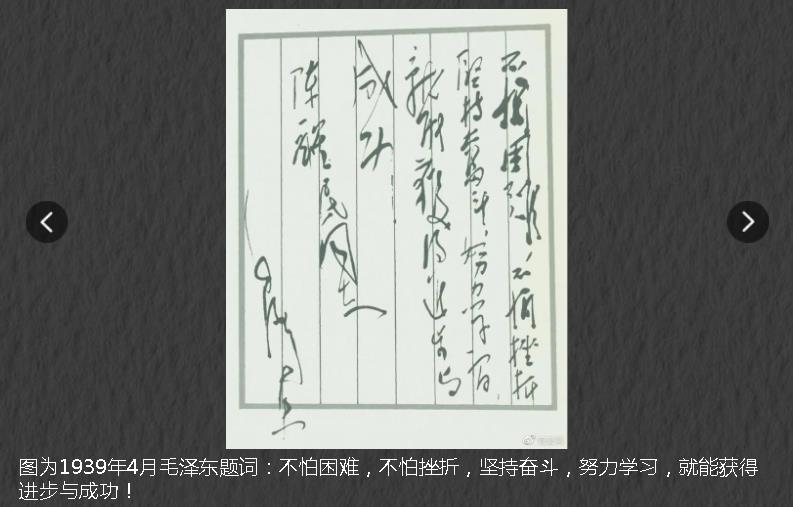 不怕困难，不怕挫折
坚持奋斗，努力学习，
就能獲得进步与
成功！
同志
毛泽东
图为1939年4月毛泽东题词：不怕困难，不怕挫折，坚持奋斗，努力学习，就能获得
进步与成功！